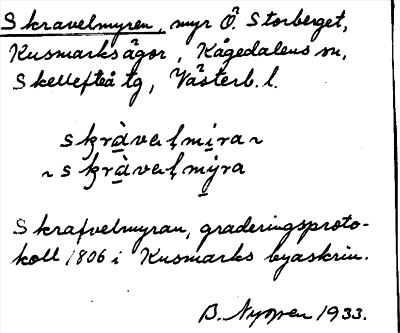 Skravelmyren, myr Ö. Storberget,
Kusmarks ägor, Kågedalens sn,
Skellefteå tg, Västerb. l.
skràvaļmira ~
~ skràvaļmýra
Skrafvelmyran, graderingsproto-
koll 1806 i Kusmarks byaskrin.
B. 1933.